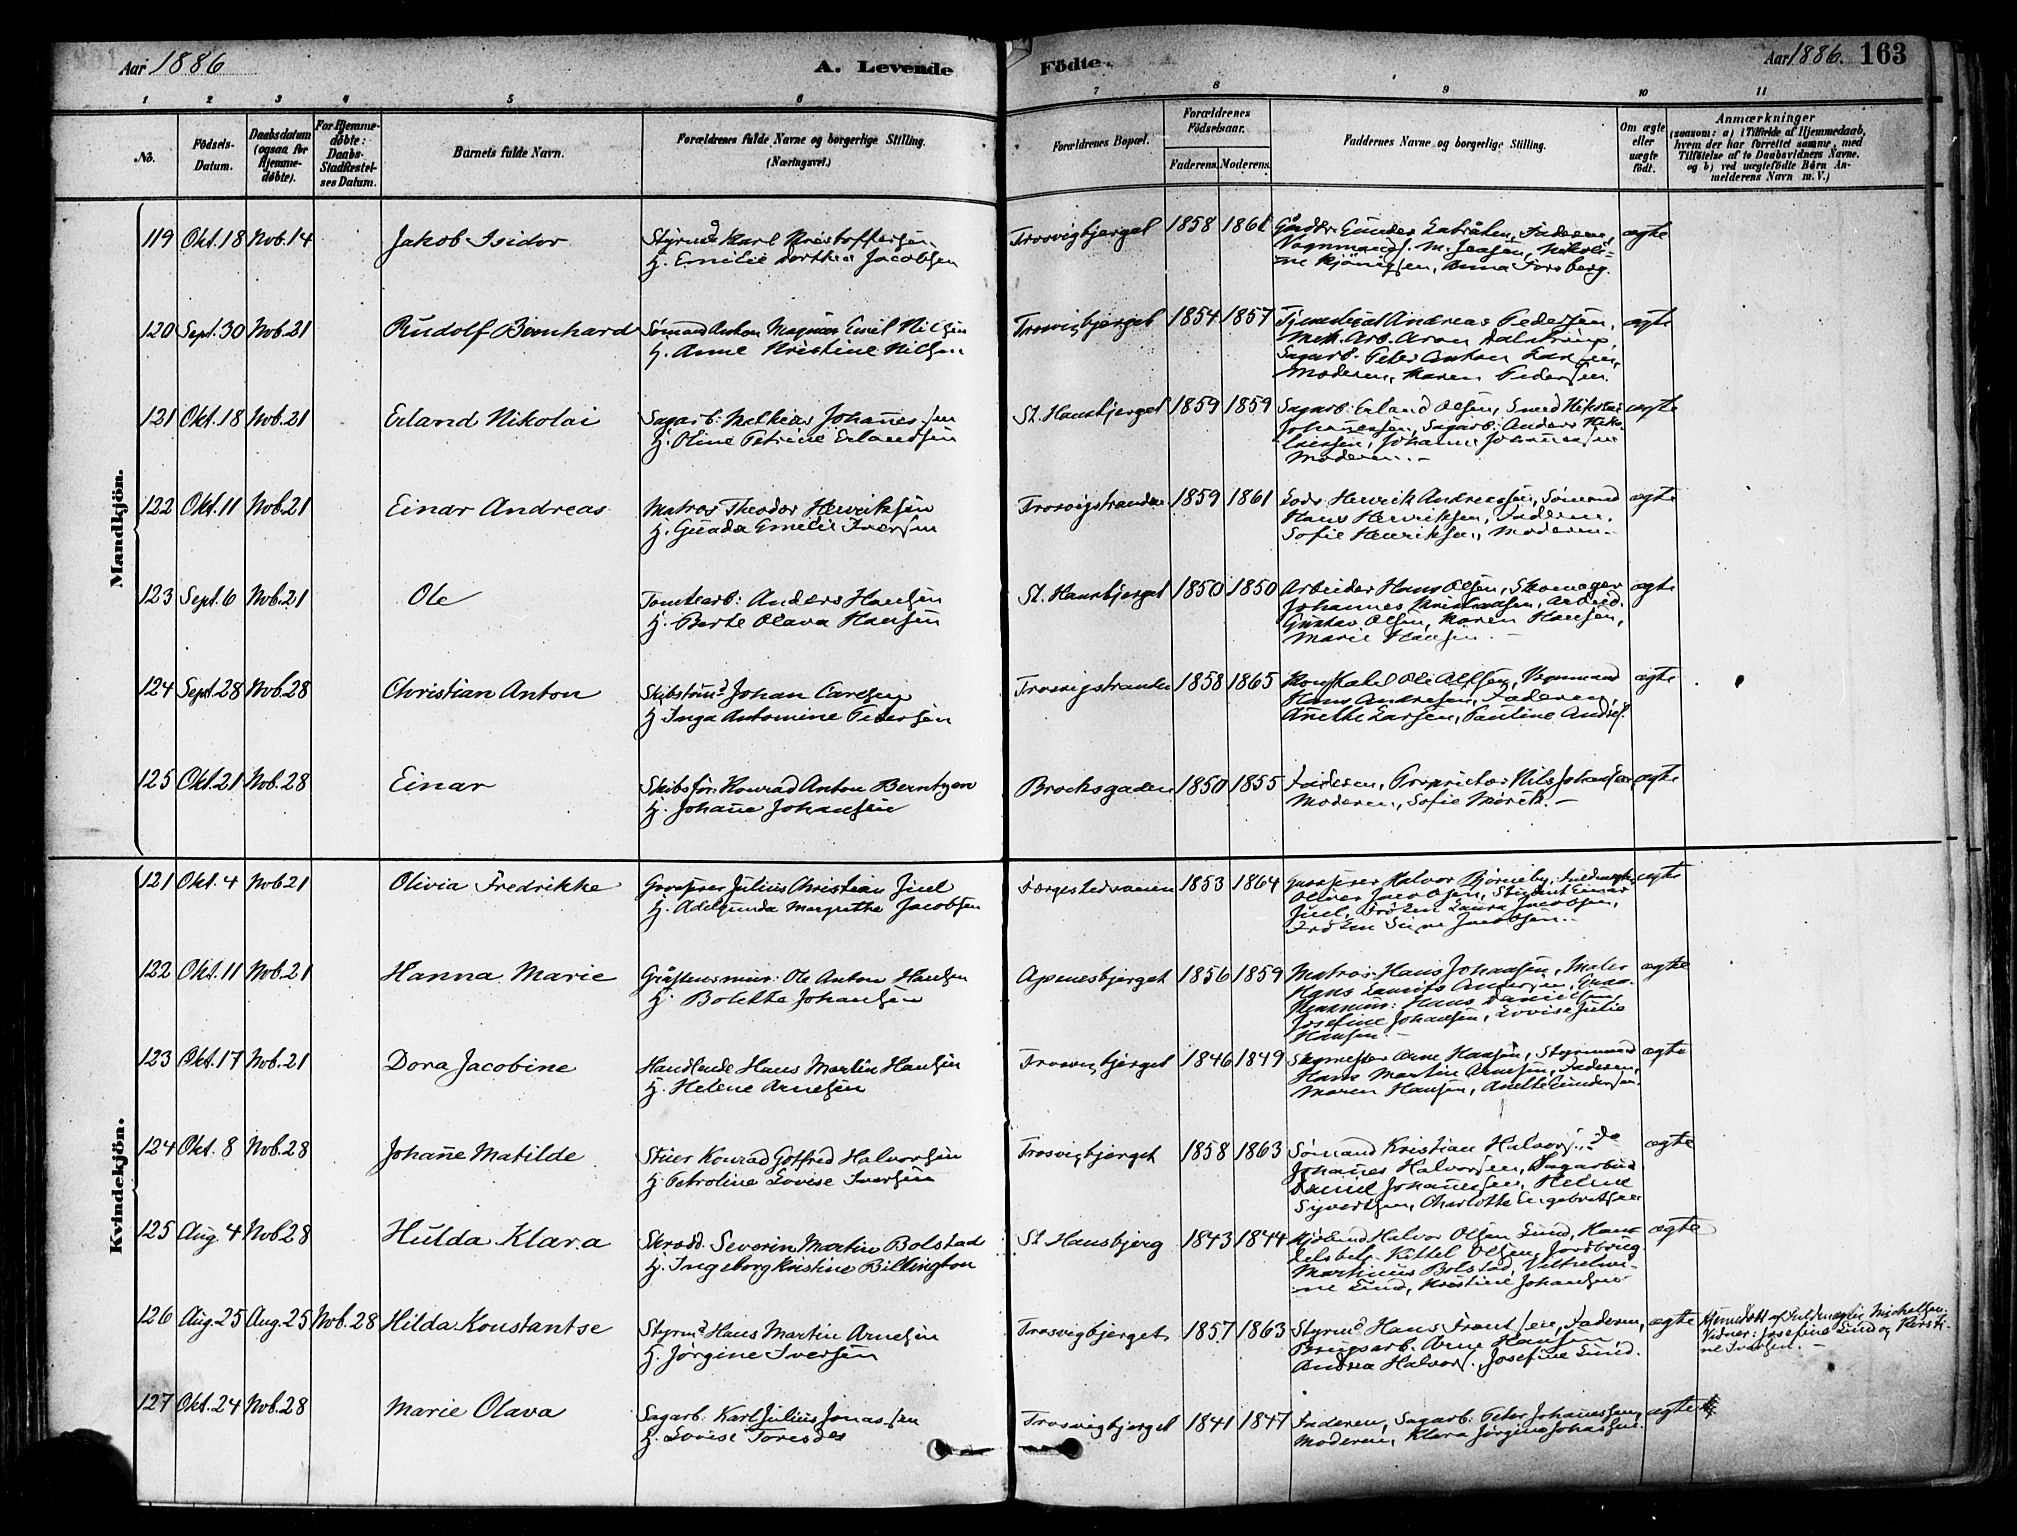 Aar 1886
A. Levende
Födte.
Aar 1886. 163
1 2 3 4 5 6 7 8 9 10 11
No.
Födsels-
Datum.
Daabsdatum
(ogsaa for
Hjemme-
döbte).
For Hjemme-
döbte:
Daabs-
Stadfæstel-
ses Datum.
Barnets fulde Navn.
Forældrenes fulde Navne og borgerlige Stilling.
(Næringsvei.)
Forældrenes Bopæl.
Forældrenes
Födselsaar.
Faderens. Moderens.
Faddernes Navne og borgerlige Stilling.
Om ægte
eller
uægte
födt.
Anmærkninger
(saasom: a) i Tilfælde af Hjemmedaab,
hvem der har forrettet samme, med
Tilföielse af to Daabsvidners Navne.
og b) ved uægtefödte Börn An-
melderens Navn m. V.)
Mandkjön.
119 Okt. 18 Nov. 14 Jakob Isidor
Styrmd Karl Kristoffersen
H. Emilie Dorthea Jacobsen
Trosvigbjerget 1858 1861
Faderen,
Anna Forsberg.
ægte
120 Sept. 30 Nov. 21 Rudolf Bernhard
Sömand Anton Magnus Emil Nilsen
H. Anne Kristine Nilsen
Trosvigbjerget 1854 1857
Andreas Pedersen,
Mek. Arb. Aron
Sagarb. Peter Anton Larsen,
Moderen, Maren Pedersen.
ægte
121 Okt. 18 Nov. 21 Erland Nikolai
Sagarb: Mathias Johannessen
H. Oline Petrine Erlandsen
St. Hansbjerget 1859 1859
Sagarb. Erland Olsen, Smed Nikolai
Johannessen, Sagarb. Anders
Moderen. -
ægte
122 Okt. 11 Nov. 21 Einar Andreas
Matros Theodor Henriksen
H. Gunda Emelie Iversen
Trosvigstranden 1859 1861
Lods Henrik Andreassen, Sömand
Hans Henriksen, Faderen,
Sofie Henriksen, Moderen.
ægte
123 Sept. 6 Nov. 21 Ole
Tomtearb: Anders Hansen
H. Berte Olava Hansen
St. Hansbjerget 1850 1850
Arbeider Hans Olsen, Skomager
Johannes Kristiansen, Arbeid.
Gustav Olsen, Maren Hansen,
Marie Hansen. -
ægte
124 Sept. 28 Nov. 28 Christian Anton
Skibstömd Johan Carlsen
H. Inga Antomine Pedersen
Trosvigstranden 1858 1865
Vognmand
Hans Andresen, Faderen,
Anethe Larsen, Pauline Andres.
ægte
125 Okt. 21 Nov. 28 Einar
Skibsför. Konrad Anton Berntzen
H. Johanne Johansen
Brocksgaden 1850 1855
Faderen, Proprietær Nils Johansen
Moderen, Sofie
ægte
Kvindekjön.
121 Okt. 4 Nov. 21 Olivia Fredrikke
Grosserer Julius Christian Juel
H. Adelgunda Margrethe Jacobsen
Færgestedsveien 1853 1864
Grosserer Halvor Björneby,
Student Einar
Juel, Fröken Laura Jacobsen,
Fröken Signe Jacobsen. -
ægte
122 Okt. 11 Nov. 21 Hanna Marie
Gråstensmur: Ole Anton Hansen
H. Bolette Johansen
Apenesbjerget 1856 1859
Matros Hans Johansen, Maler
Hans Laurits Andersen,
Hans Danielsen,
Josefine Johansen, Lovise Julie
Hansen. -
ægte
123 Okt. 17 Nov. 21 Dora Jacobine
Handlende Hans Martin Hansen
H. Helene Arnesen
Trosvigbjerget 1846 1849
Arne Hansen, Styrmand
Hans Martin Arnesen, Faderen,
Maren Hansen, Anethe Gundersen.
ægte
124 Okt. 8 Nov. 28 Johanne Matilde
Stuer Konrad Gotfred Halvorsen
H. Petroline Lovise Iversen
Trosvigbjerget 1858 1863
Sömand Kristian Halvors. do
Johannes Halvorsen, Sagarbeid.
Daniel Johannessen, Helene
Syvertsen, Charlotte Engebretsen
ægte
125 Aug. 4 Nov. 28 Hulda Klara
Skrædd. Severin Martin Bolstad
H. Ingeborg Kristine Billington
St. Hansbjerg 1843 1844
Kjöbmd Halvor Olsen Lund, Han-
delsbet. Kittel Olsen, Jordbrug
Martinus Bolstad, Vilhelmi-
ne Lund, Kristine Johansen
ægte
126 Aug. 25 Aug. 25 Nov. 28 Hilda Konstantse
Styrmd Hans Martin Arnesen
H. Jørgine Iversen
Trosvigbjerget 1857 1863
Styrmd Hans Frantsen, Faderen,
Brugsarb. Arne Hansen,
Andrea Halvors., Josefine Lund.
ægte
Hjemdöbt af
Vidner: Josefine Lund og Kirsti-
ne Iversen. -
127 Okt. 24 Nov. 28 Marie Olava
Sagarb: Karl Julius Jonassen
H. Lovise Toresdr
Trosvigbjerget 1841 1847
Faderen, Sagarb: Peter Johannessen,
Moderen, Klara Jørgine Johansen.
ægte